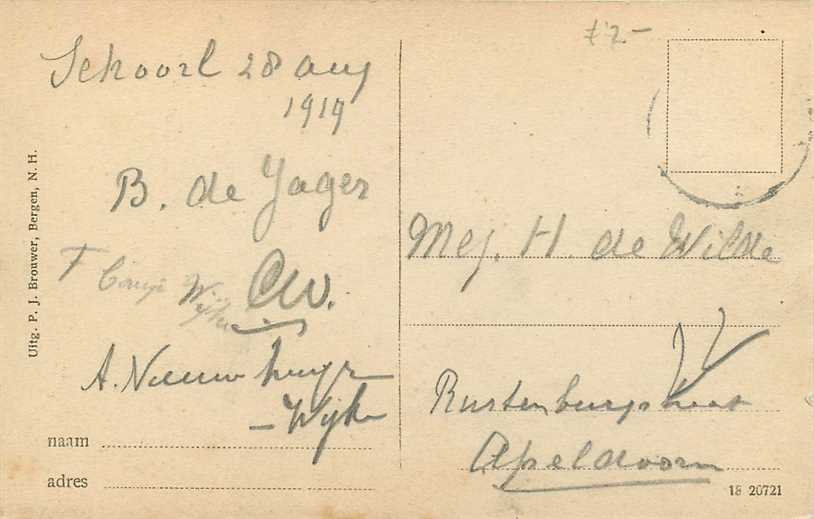 Schoorl 28 aug
1919
B. de Jager
Cw.
A. Nieuwenhuijze
- Wijk
naam
adres
Uitg. P. J. Brouwer, Bergen, N. H.
f 2-
Mej. H. de Wilde
Rustenburgstraat
Apeldoorn
18 20721